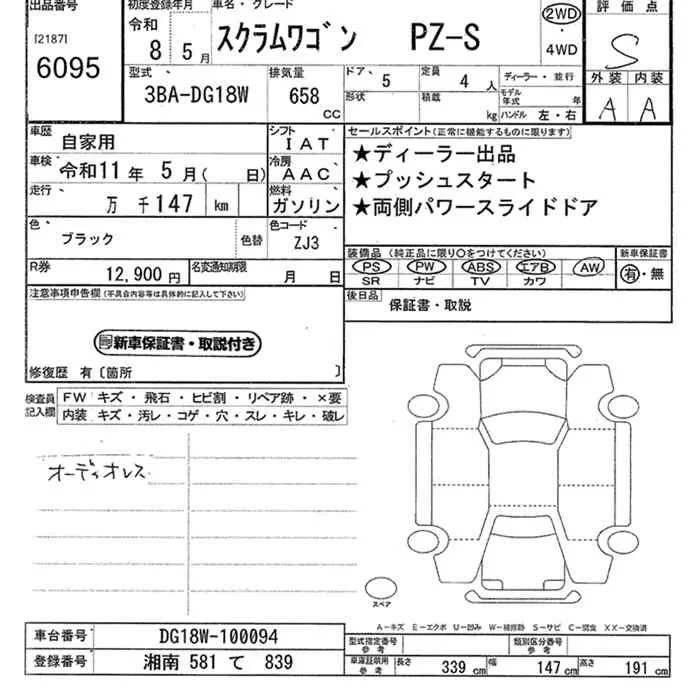 出品番号
[2187]
6095
初度登録年月
令和
8 5月
車名・グレード
スクラムワゴン PZ-S
2WD
・
4WD
評価点
S
外装 内装
A A
型式
3BA-DG18W
排気量
658
CC
ドア、 5
定員 4 人
形状
積載 kg
ディーラー・並行
モデル年式 年
ハンドル 左・右
車歴 自家用
シフト IAT
車検 令和11年 5月( 日)
冷房 AAC
走行 万 千147 km
燃料 ガソリン
色 ブラック
色替
色コード ZJ3
セールスポイント(正常に機能するものに限ります)
★ディーラー出品
★プッシュスタート
★両側パワースライドドア
R券 12,900円
名変通知期限 月 日
装備品(純正品に限り○をつけてください)
PS PW ABS エアB AW
SR ナビ TV カワ
新車保証書
有・無
注意事項申告欄(不具合内容等は具体的に記入して下さい)
後日品 保証書・取説
新車保証書・取説付き
修復歴 有〔箇所 〕
検査員記入欄
FW キズ・飛石・ヒビ割・リペア跡・×要
内装 キズ・汚レ・コゲ・穴・スレ・キレ・破レ
オーディオレス
スペア
A-キズ E-エクボ U-凹み W-補修跡 S-サビ C-腐食 XX-交換済
車台番号 DG18W-100094
登録番号 湘南 581 て 839
型式指定番号 参考
類別区分番号 参考
車庫証明用 参考
長さ 339 cm 幅 147 cm 高さ 191 cm